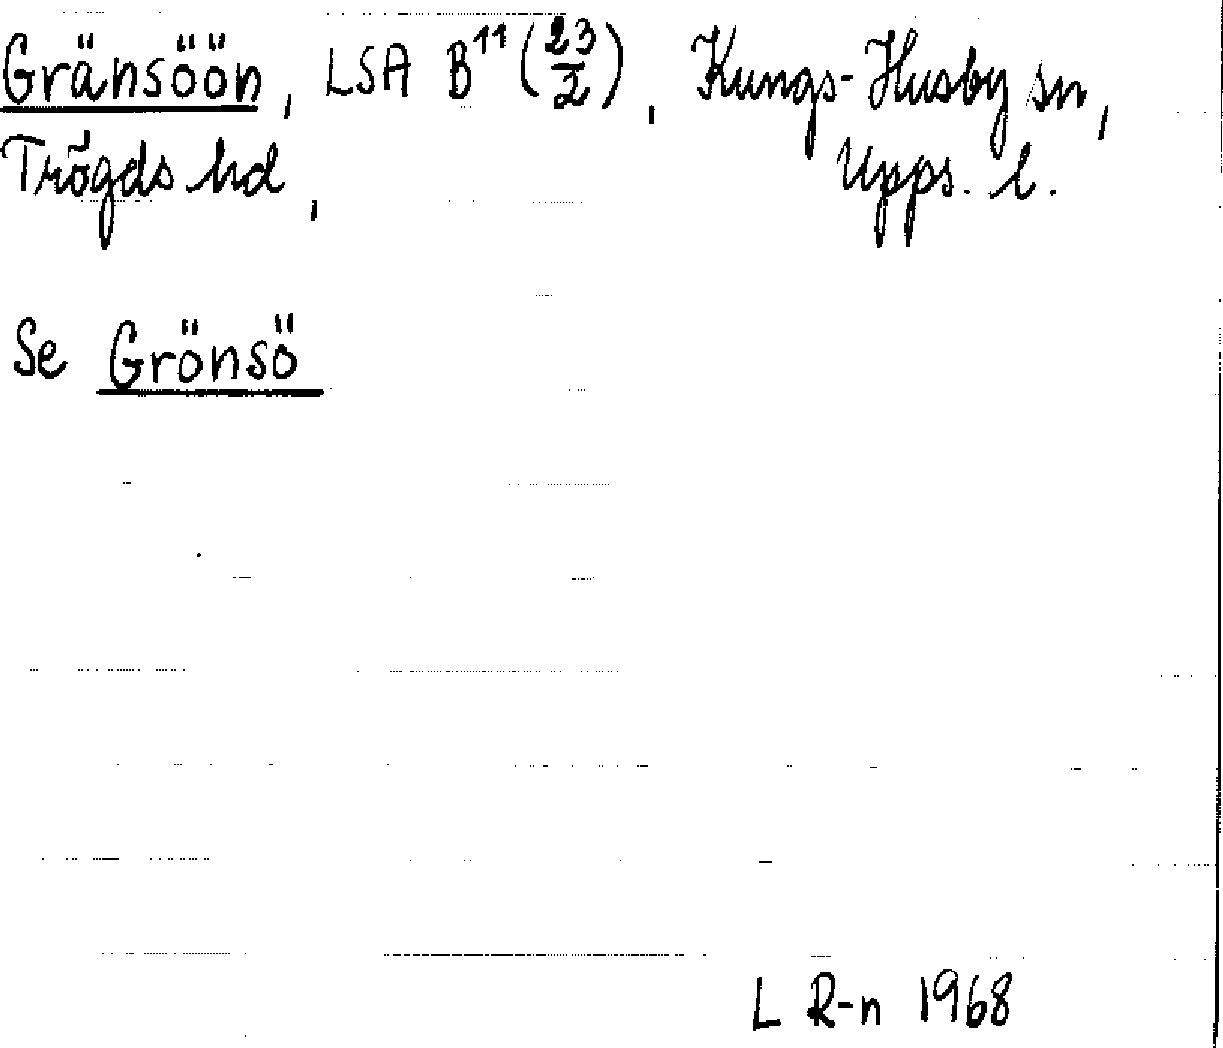 Gränsöön, LSA B¹¹ (23/2), Kungs-Husby sn,
Trögds hd, Upps. l.
Se Grönsö
L R-n 1968